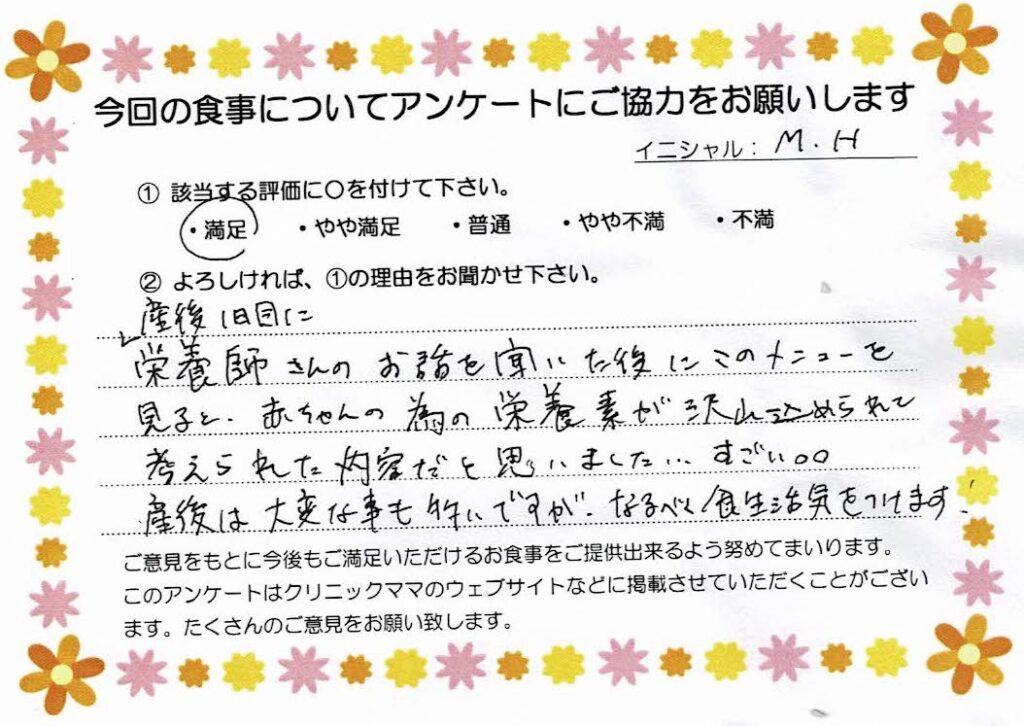 今回の食事についてアンケートにご協力をお願いします
イニシャル： M. H
① 該当する評価に〇を付けて下さい。
・満足 ・やや満足 ・普通 ・やや不満 ・不満
② よろしければ、①の理由をお聞かせ下さい。
産後1日目に
栄養師さんのお話を聞いた後にこのメニューを
見ると、赤ちゃんの為の栄養素が沢山込められて
考えられた内容だと思いました… すごい。。
産後は大変な事も多いですが、なるべく食生活気をつけます!
ご意見をもとに今後もご満足いただけるお食事をご提供出来るよう努めてまいります。
このアンケートはクリニックママのウェブサイトなどに掲載させていただくことがござい
ます。たくさんのご意見をお願い致します。